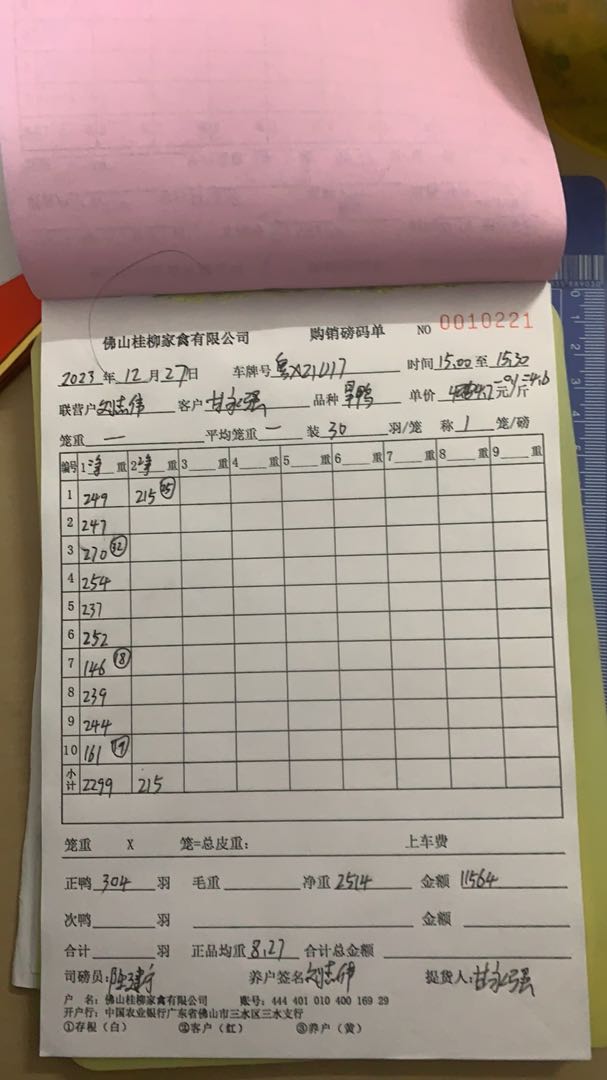 佛山桂柳家禽有限公司 购销磅码单 NO 0010221
2023年12月27日 车牌号 粤X21U17 时间 15.00 至 15.30
联营户 刘志伟 客户 甘永强 品种 鸭 单价 4.7 -0.1=4.6 元/斤
笼重 — 平均笼重 — 装 30 羽/笼 称 1 笼/磅
编号 1净重 2净重 3重 4重 5重 6重 7重 8重 9重
1 249 215 25
2 247
3 270 32
4 254
5 237
6 252
7 146 18
8 239
9 244
10 161 19
小计 2299 215
笼重 X 笼=总皮重: 上车费
正鸭 304 羽 毛重 净重 2514 金额 11564
次鸭 羽 金额
合计 羽 正品均重 8.27 合计总金额
司磅员: 养户签名 刘志伟 提货人: 甘永强
户 名: 佛山桂柳家禽有限公司 账号: 444 401 010 400 169 29
开户行: 中国农业银行广东省佛山市三水区三水支行
①存根（白） ②客户（红） ③养户（黄）
0 1 2 3 4 5